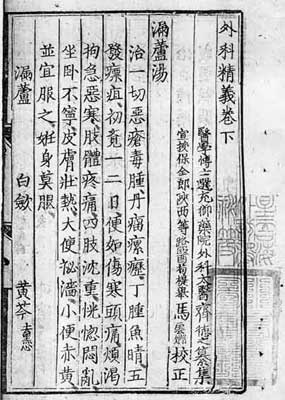 外科精義卷下
醫學博士兼充御藥院外科太醫齊德之纂集
宣授保金郎陝西等路提舉馬雲卿校正
漏蘆湯
治一切惡瘡毒腫丹瘤瘰癧丁腫魚睛五
發瘭疽初覺一二日便如傷寒頭痛煩渴
拘急惡寒肢體疼痛四肢沈重恍惚悶亂
坐卧不寧皮膚壯熱大便秘澁小便赤黃
並宜服之姙身莫服
漏蘆 白斂 黃芩去黑心